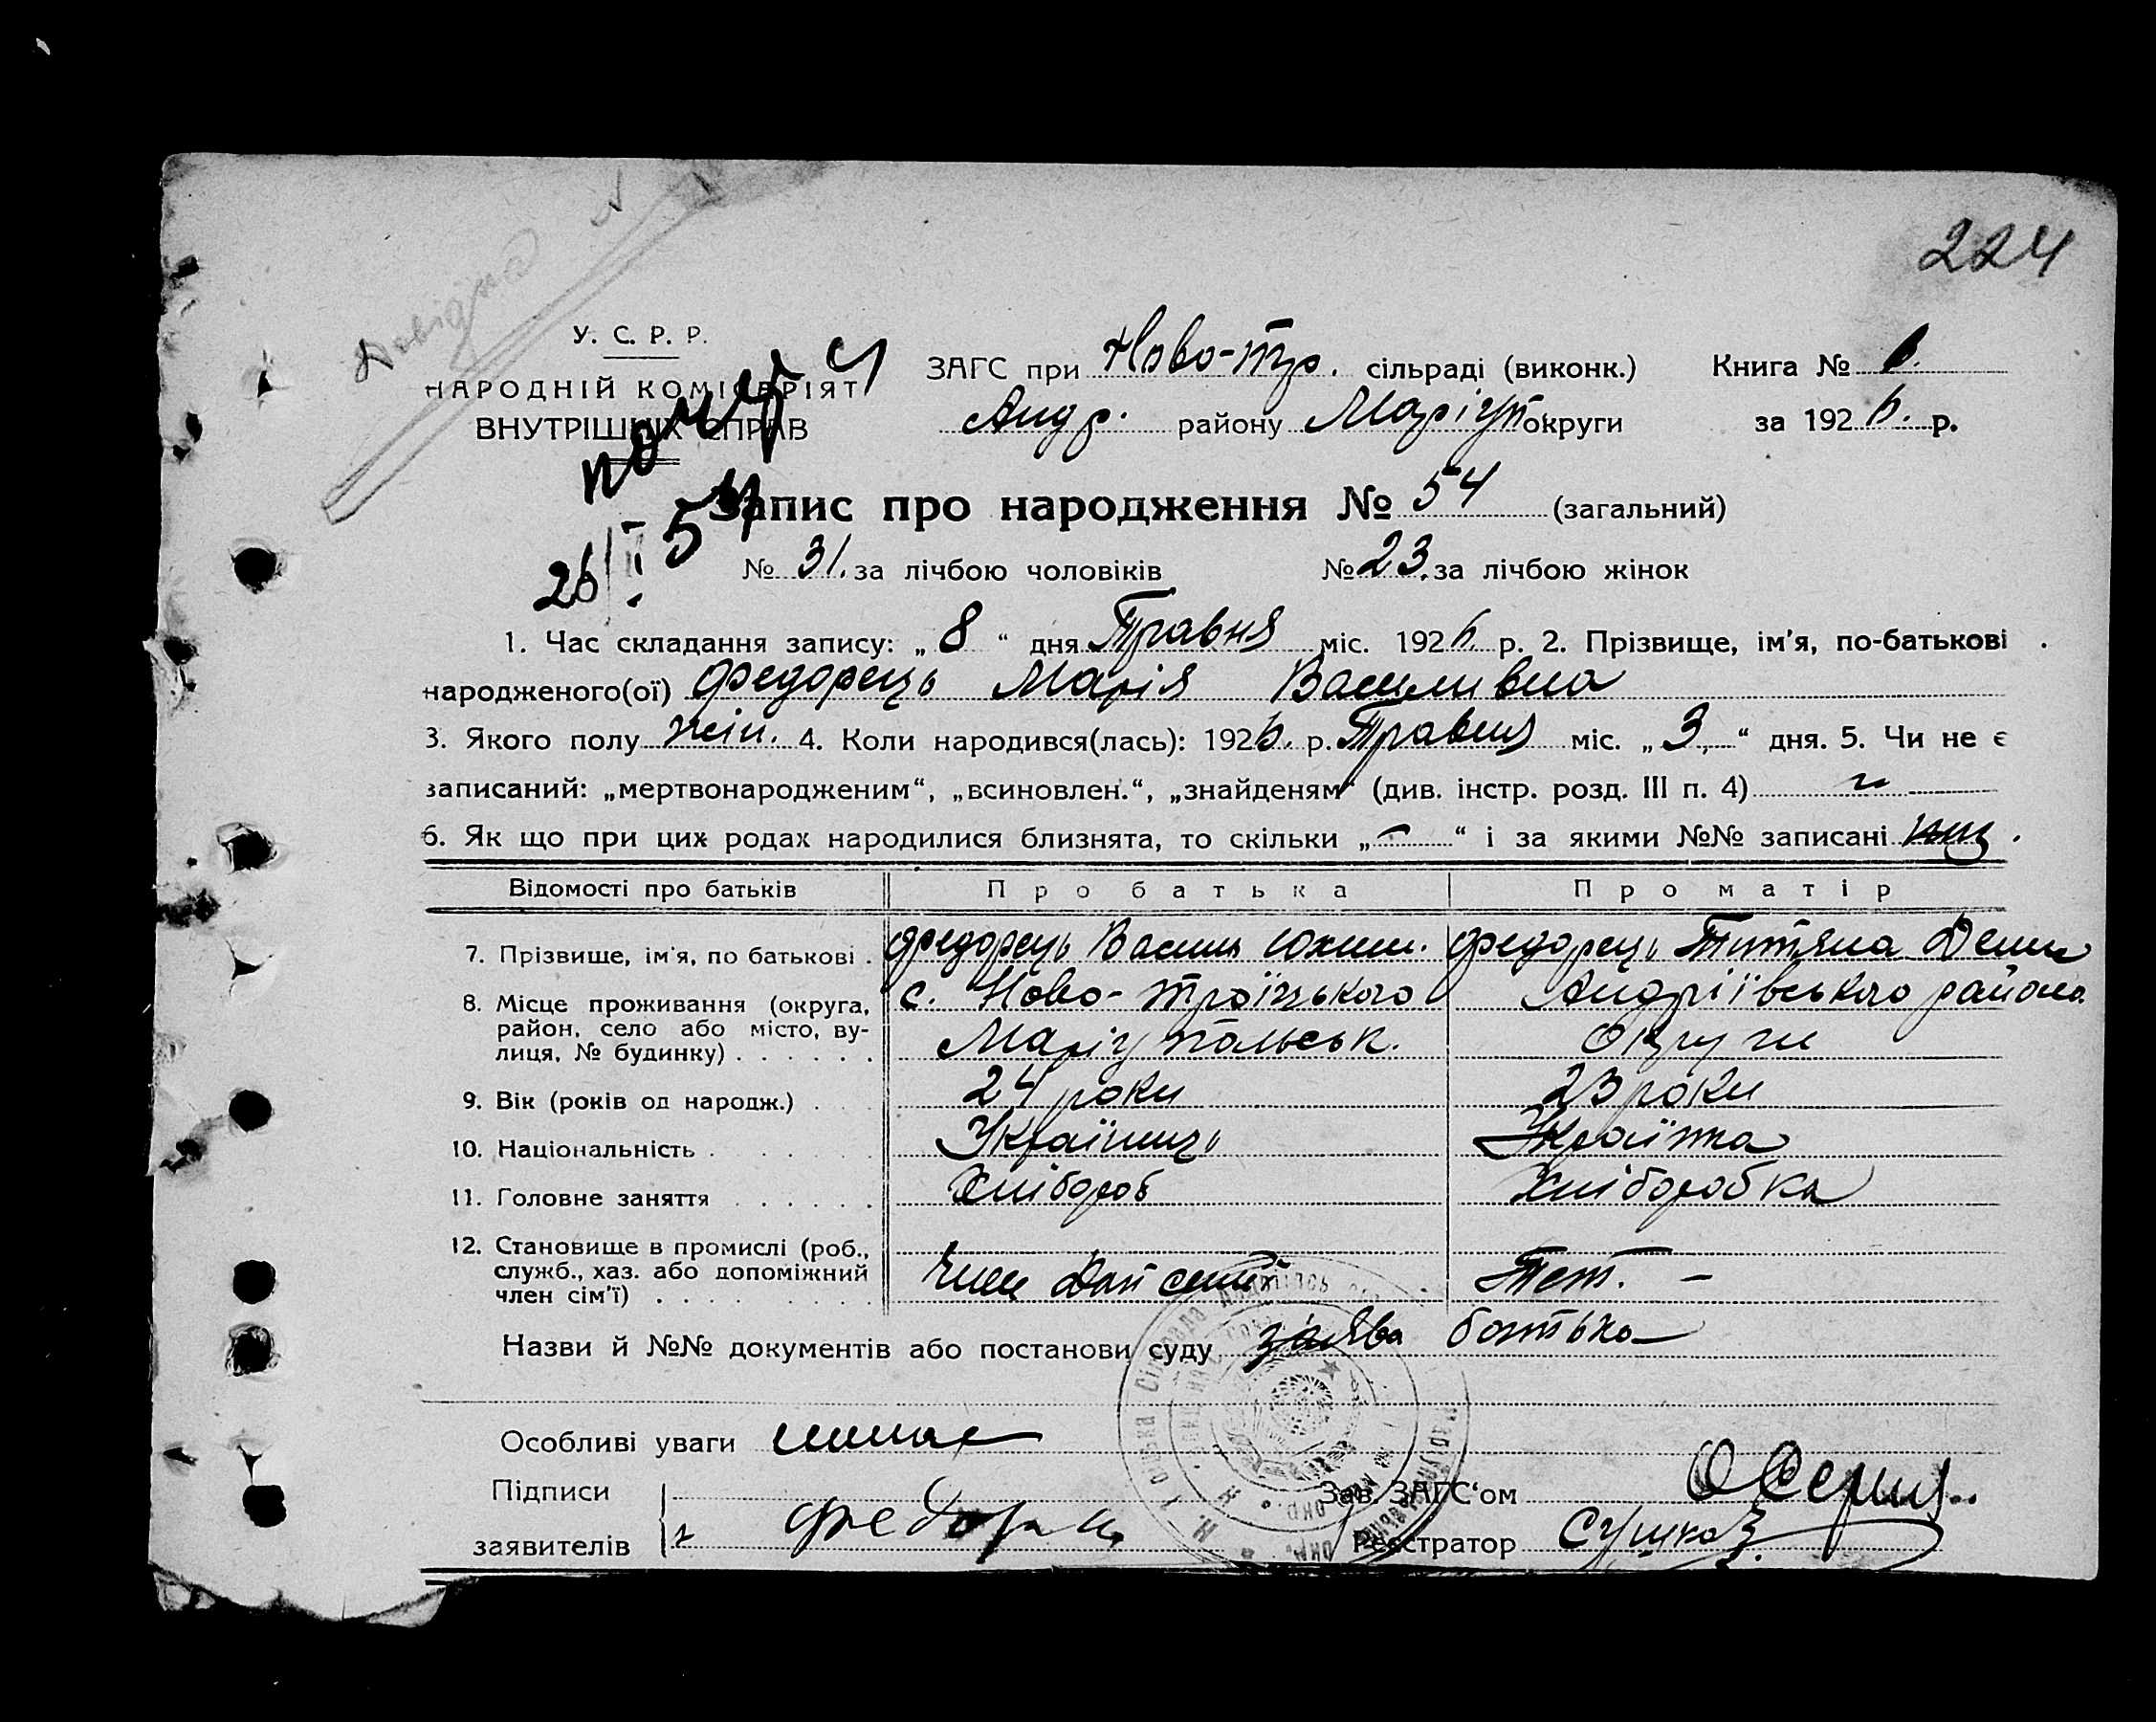 224
Довідка
У. С. Р. Р.
НАРОДНІЙ КОМІСАРІЯТ
ВНУТРІШНІХ СПРАВ
ЗАГС при Ново-тр. сільраді (виконк.) Книга № 1.
Андр. району Маріуп округи за 1926. р.
54
26/I
Запис про народження № 54 (загальний)
№ 31. за лічбою чоловіків № 23. за лічбою жінок
1. Час складання запису: „ 8 “ дня Травня міс. 1926. р. 2. Прізвище, ім'я, по-батькові
народженого(ої) Федорець Марія Василивна
3. Якого полу жін. 4. Коли народився(лась): 1926. р. Травня міс. „ 3 “ дня. 5. Чи не є
записаний: „мертвонародженим“, „всиновлен.“, „знайденям“ (див. інстр. розд. III п. 4)
6. Як що при цих родах народилися близнята, то скільки „ – “ і за якими №№ записані
Відомості про батьків Про батька Про матір
7. Прізвище, ім'я, по батькові . Федорець Василь Юхим. Федорець Титяна Деми
8. Місце проживання (округа, с. Ново-троїцького Андріївського района
район, село або місто, ву-
лиця, № будинку) . . . . . . Маріупольськ. Округи
9. Вік (років од народж.) . . . 24 роки 23 роки
10. Національність . . . . . . Українець Українка
11. Головне заняття . . . . . . Хлібороб Хліборобка
12. Становище в промислі (роб.,
служб., хаз. або допоміжний Член Доп семії Тет. –
член сім'ї) . . . . . . . . .
Назви й №№ документів або постанови суду заява батька
Особливі уваги немає
Підписи Зав. ЗАГС‘ом
заявителів Федорец Реєстратор Сушко